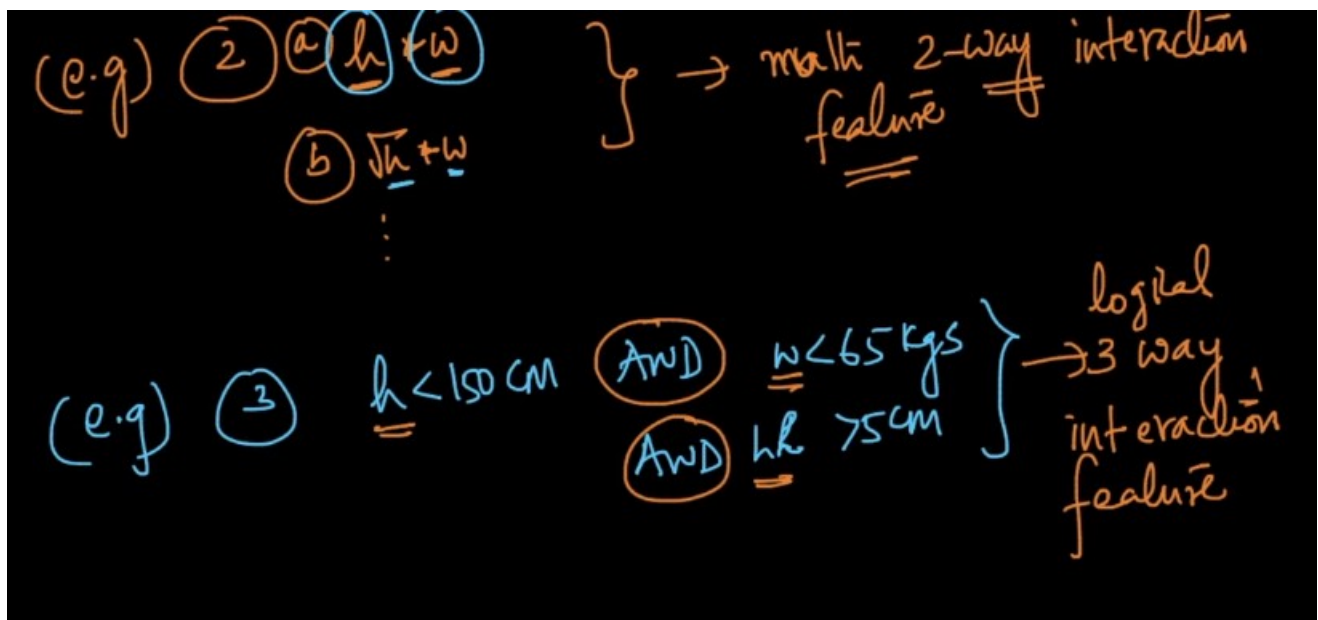 (e.g) 2 a h * w } → math 2-way interaction
feature
b √h * w
⋮
(e.g) 3 h < 150 cm AND w < 65 kgs
AND hl > 5 cm
→ logical
3 way
interaction
feature